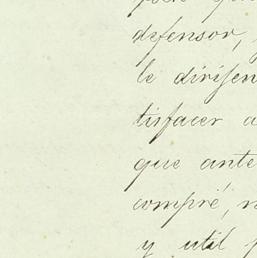 defensor,
le dirijen
tisfacer a
que ante
compré, n
y util p